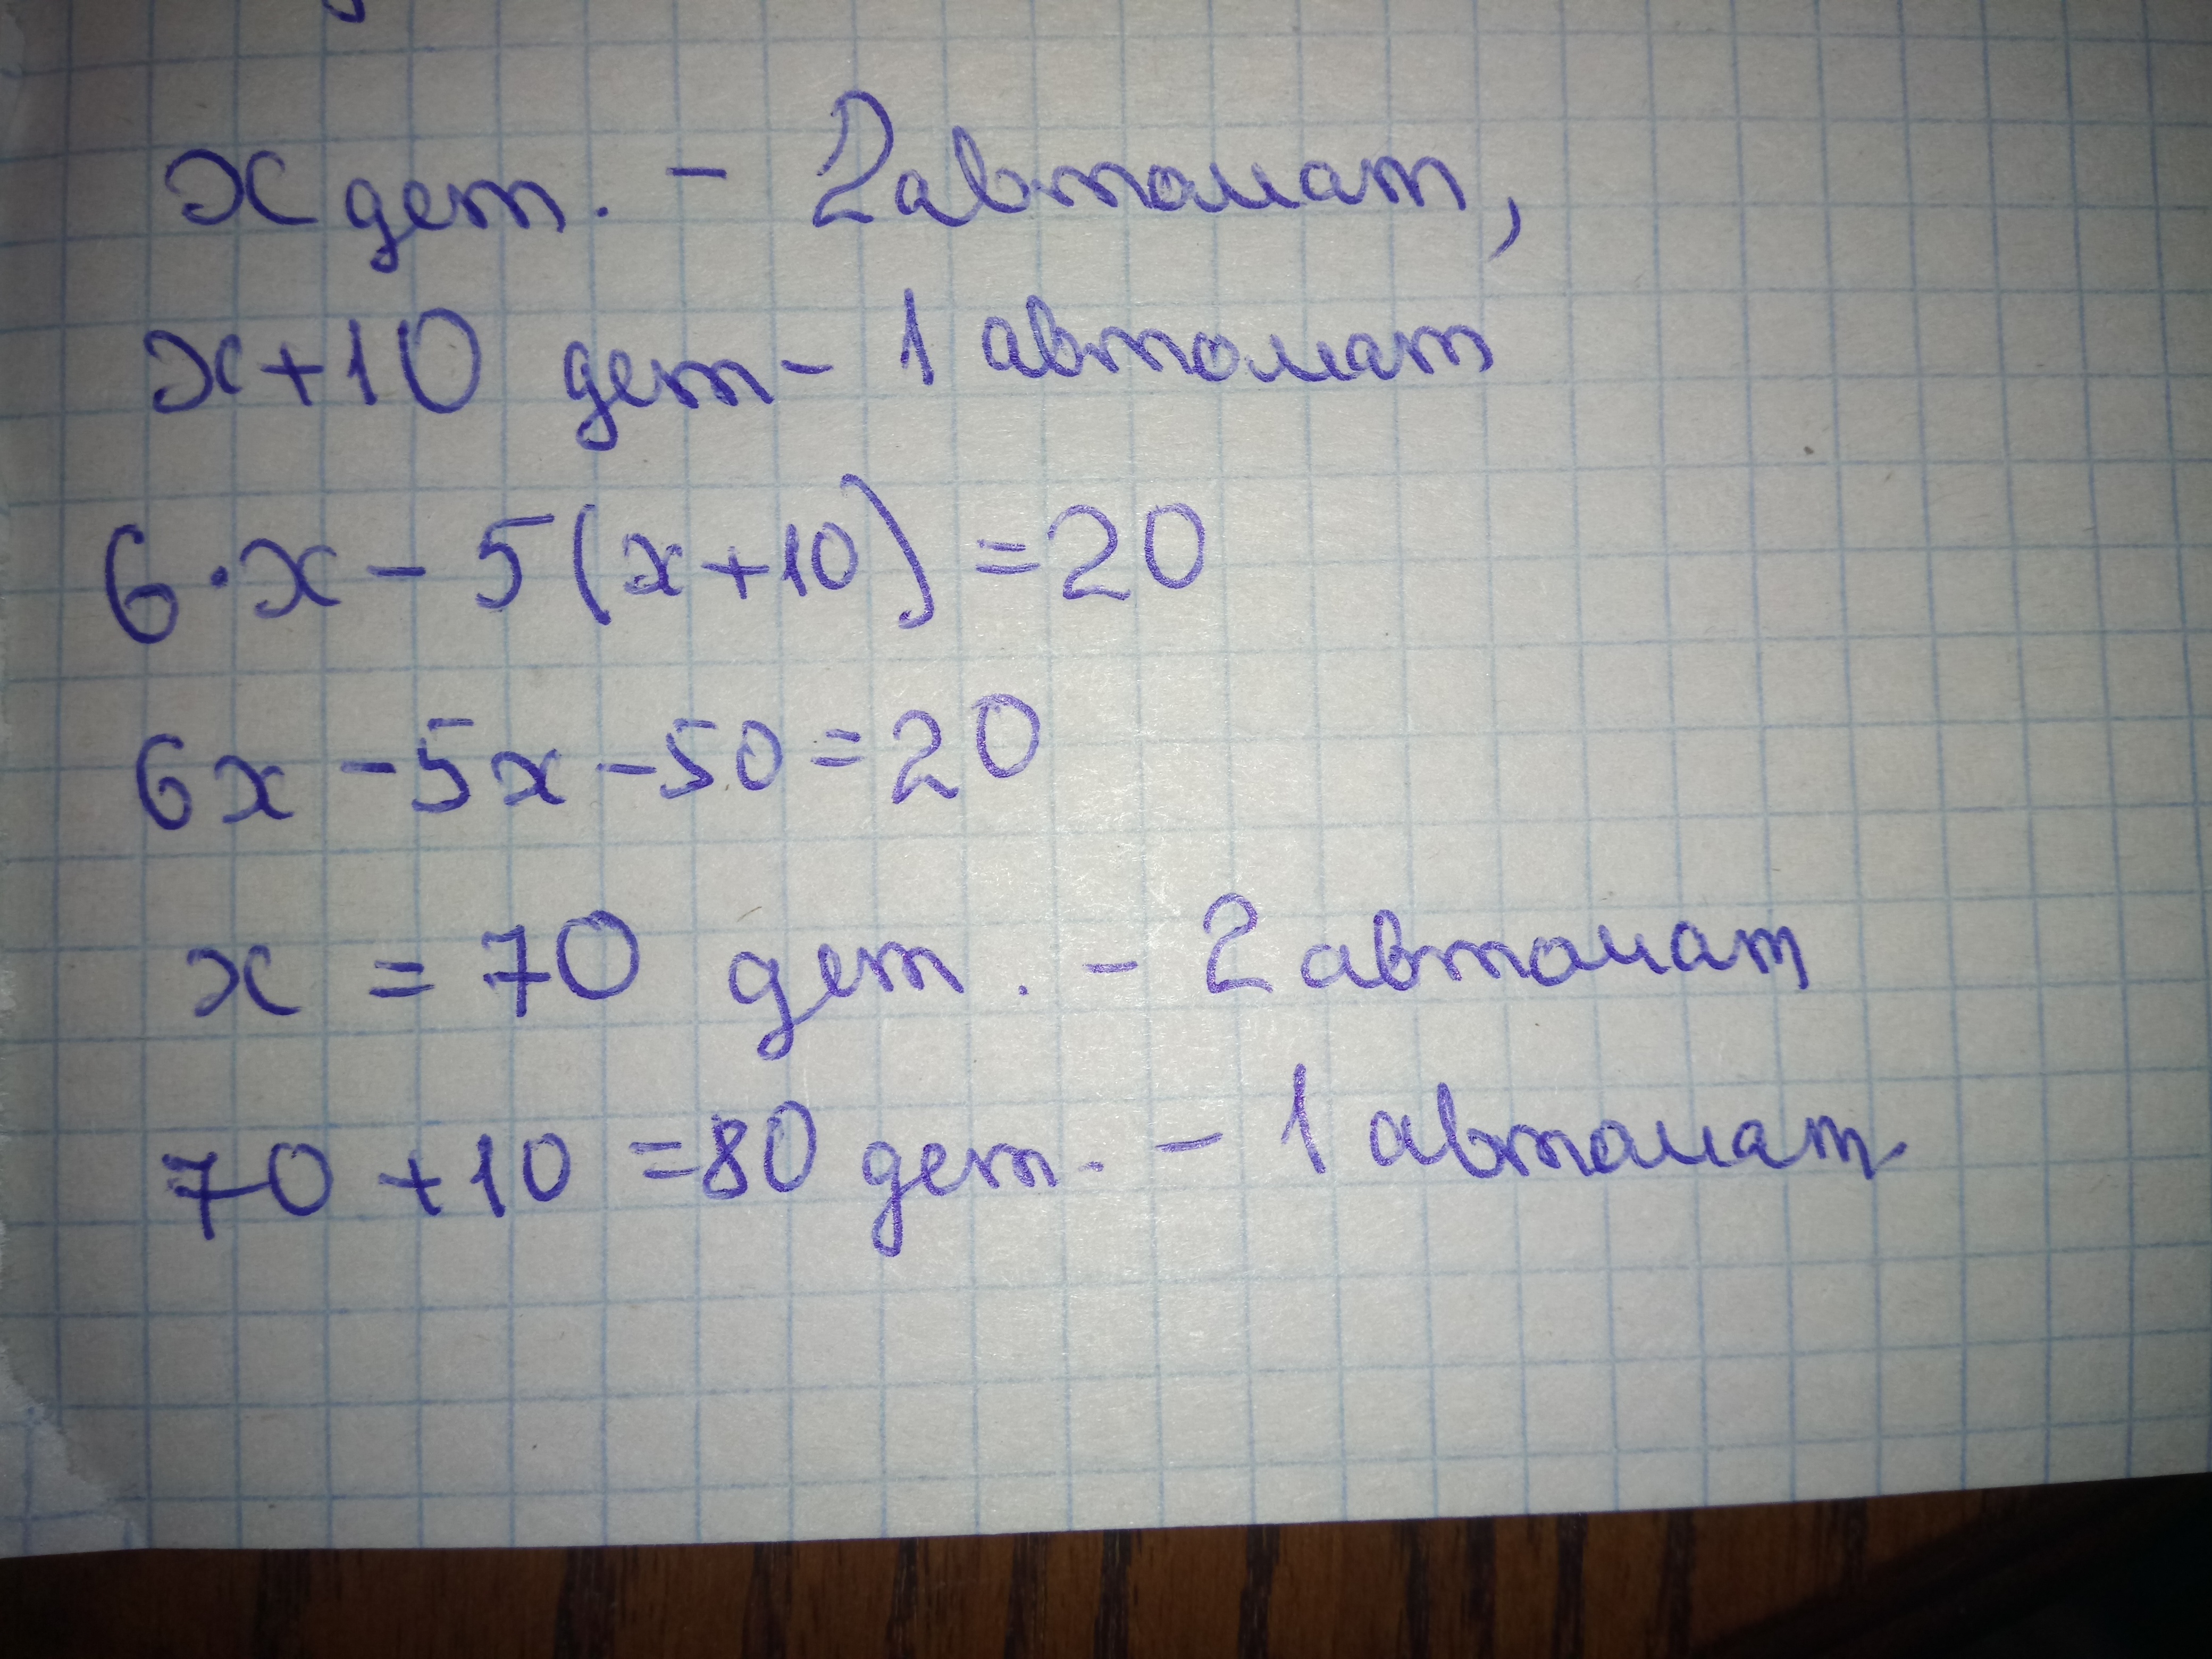 x дет. - 2 автомат,
x+10 дет - 1 автомат
6·x - 5(x+10) = 20
6x - 5x - 50 = 20
x = 70 дет. - 2 автомат
70 + 10 = 80 дет. - 1 автомат.